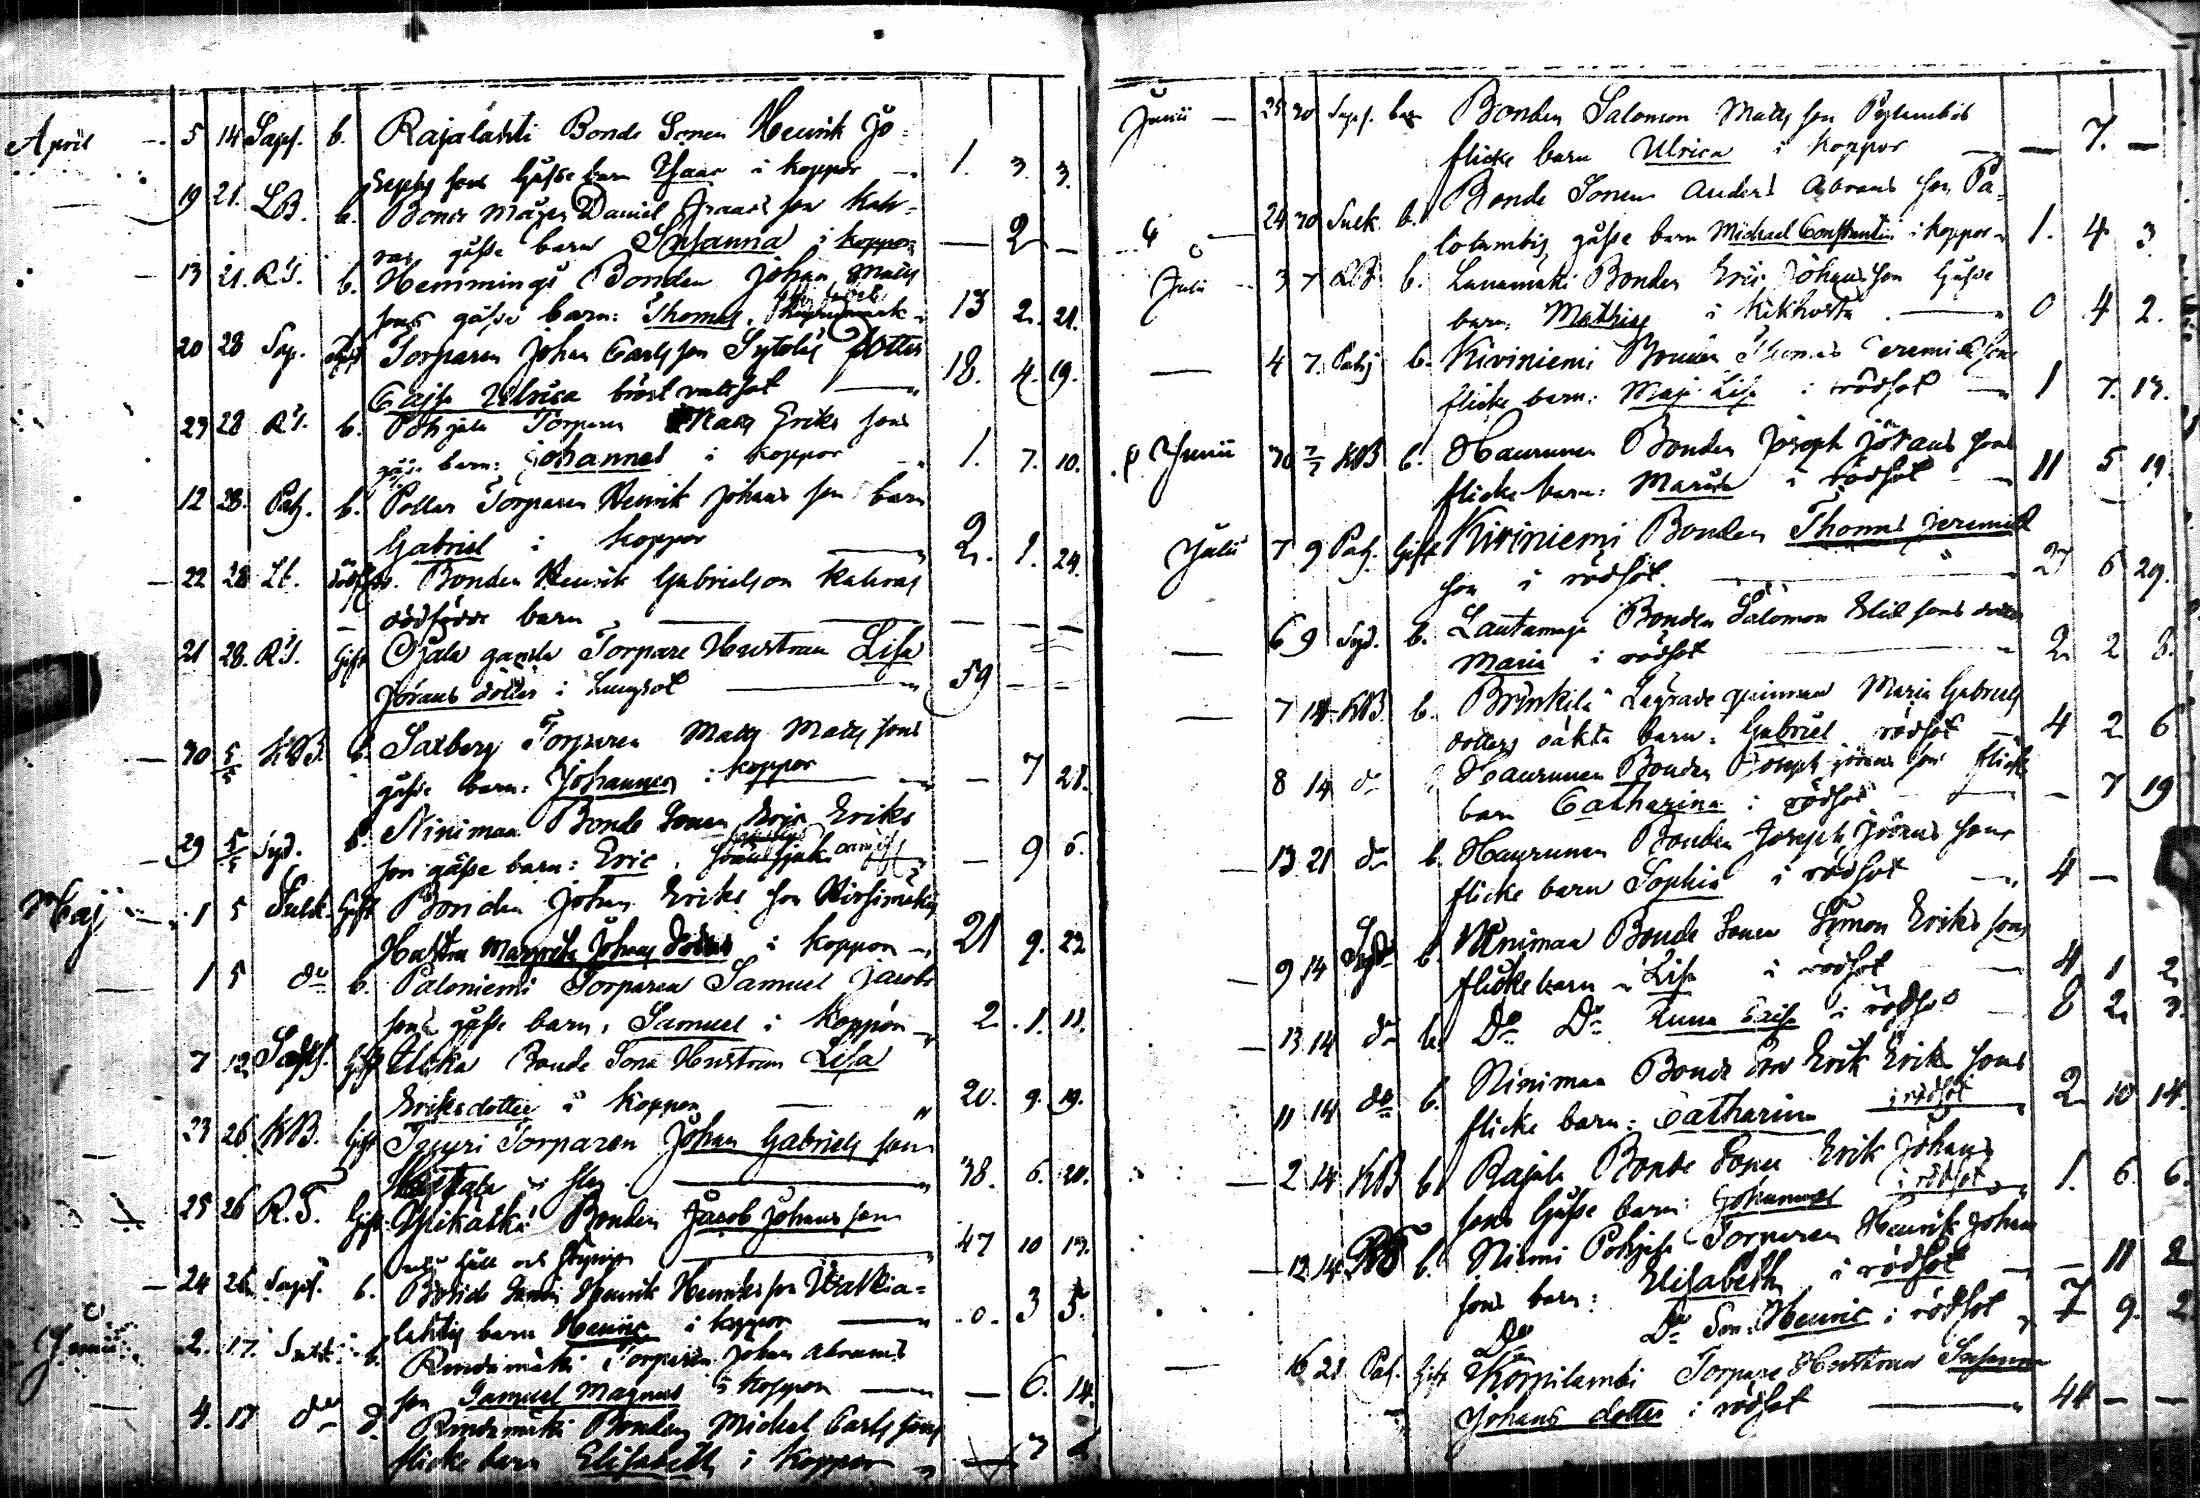 April 5 14 Saps. b. Rajalahti Bonde Sonen Henrik Jo-
sephs sons gåsse barn Isaac i koppor 1. 3. 3.
19 21. LB. b. Bonds Mågen Daniel Isaacs son Kah-
ras gåsse barn Susanna i koppor — 2 —
13 21. R.T. b. Hemmings Bonden Johan Matts
sons gåsse barn: Thomas, 13 2. 21.
20 28 Sap. Torparen Johan Carlsson Sytelis dotter
Cajsa Ulrica bröst vattsot 18. 4. 19.
23 28 R.T. b. Pohjala Torparen Matts Eriks sons
gåsse barn: Johannes i koppor 1. 7. 10.
12 28. Patj. b. Pollar Torparen Henrik Johans son barn
Gabriel i koppor 2. 1. 24.
22 28 Lt. Bonden Henrik Gabrielson Kahras
dödfödde barn — — —
21 28. R.T. Gift Ojala gamla Torpare Hustrun Lisa
Jörans dotter i Lungsot 59 — —
30 5/5 KB. b. Saxberg Torparen Matts Matts sons
gåsse barn: Johannes i koppor — 7 28.
29 5/5 Syd. b. Niniman Bonde Sonen Eric Eriks
son gåsse barn: Eric, — 9 6.
Maj 1 5 Sulk. Gift Bonden Johan Eriks son Kirsimäkis
Hustru Margreta Johans dotter i koppor 21 9. 22
1 5 do b. Paloniemi Torparen Samuel Jacobs
sons gåsse barn, Samuel i koppor 2. 1. 11.
7 12 Saps. Gift Ulika Bonde Sons Hustrun Lisa
Eriksdotter i koppor 20. 9. 19.
23 26 KB. Gift Tyyri Torparen Johan Gabriels son
38. 6. 20.
25 26 R.T. Gift Bonden Jacob Johans son
håll och styng 47 10 13.
24 26 Saps. b. Bonde Sonen Henrik Henriks son Walkia-
lahtis barn Henric i koppor 0. 3 5.
Junii 2. 17. Sulk. b. Rindamäki Torparen Johan Abrams
son Samuel Magnus i koppor — 6. 14.
4. 17 do b. Rindamäki Bonden Michel Carls sons
flicke barn Elisabeth i koppor — 7
Junii 25 30 Saps. barn Bonden Salomon Matts son Pylembis
flicke barn Ulrica i koppor — 7. —
24 30 Sulk b. Bonde Sonen Anders Abrams son Pa-
lolambis gåsse barn Michael Constantin i koppor 1. 4 3
Julii 3 7 KB b. Lanamäki Bonden Eric Johans son Gåsse
barn, Mathias i kikhosta 0 4 2.
4 7. Patj b. Kiviniemi Bonden Thomas Jeremiæ sons
flicke barn: Maj Lisa i rödsot 1 7. 13.
Junii 30 7/7 KB b. Haurunen Bonden Joseph Jörans sons
flicke barn: Maria i rödsot 11 5 19.
Julii 7 9 Patj. Gift Kiviniemi Bonden Thomas Jeremiæ
son i rödsot. 27 6 29.
6 9 Syd. b. Lautamaja Bonden Salomon Eliæ sons dotter
Maria i rödsot 2 2 8.
7 14 KB. b. Brinkilä Lägrade quinnan Maria Gabriels
dotters oäkta barn: Gabriel rödsot 4 2 6
8 14 do Haurunen Bonden Joseph Jörans sons flicke
barn Catharina i rödsot — 7 19
13 21 do b. Haurunen Bonden Joseph Jörans sons
flicke barn Sophia i rödsot 4 —
9 14 Syd b. Niniman Bonde Sonen Simon Eriks sons
flicke barn Lisa i rödsot 4 1 2
13 14 do b. Do Do Anna Cajsa i rödsot 8 2. 3.
11 14 do b. Niniman Bonde Son Erik Eriks sons
flicke barn: Catharina i rödsot 2 10 14.
2 14 KB b. Rajala Bonde Sonen Erik Johans
sons Gåsse barn Johannes i rödsot 1. 6 6.
12 14 RT b. Niemi Pohjala Torparen Henrik Johans
sons barn: Elisabeth i rödsot — 11 2
Do Do Son: Henric i rödsot 7 9. 2
16 21 Pat. Gift Korpilambi Torpare Hustrun Susanna
Johans dotter i rödsot 44 — —